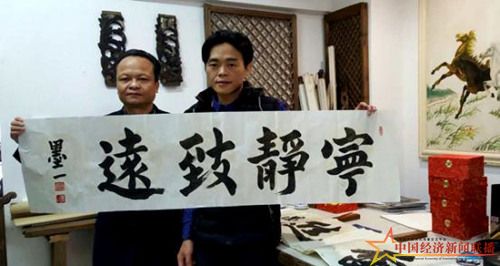 寧靜致遠
墨一
中国经济新闻联播